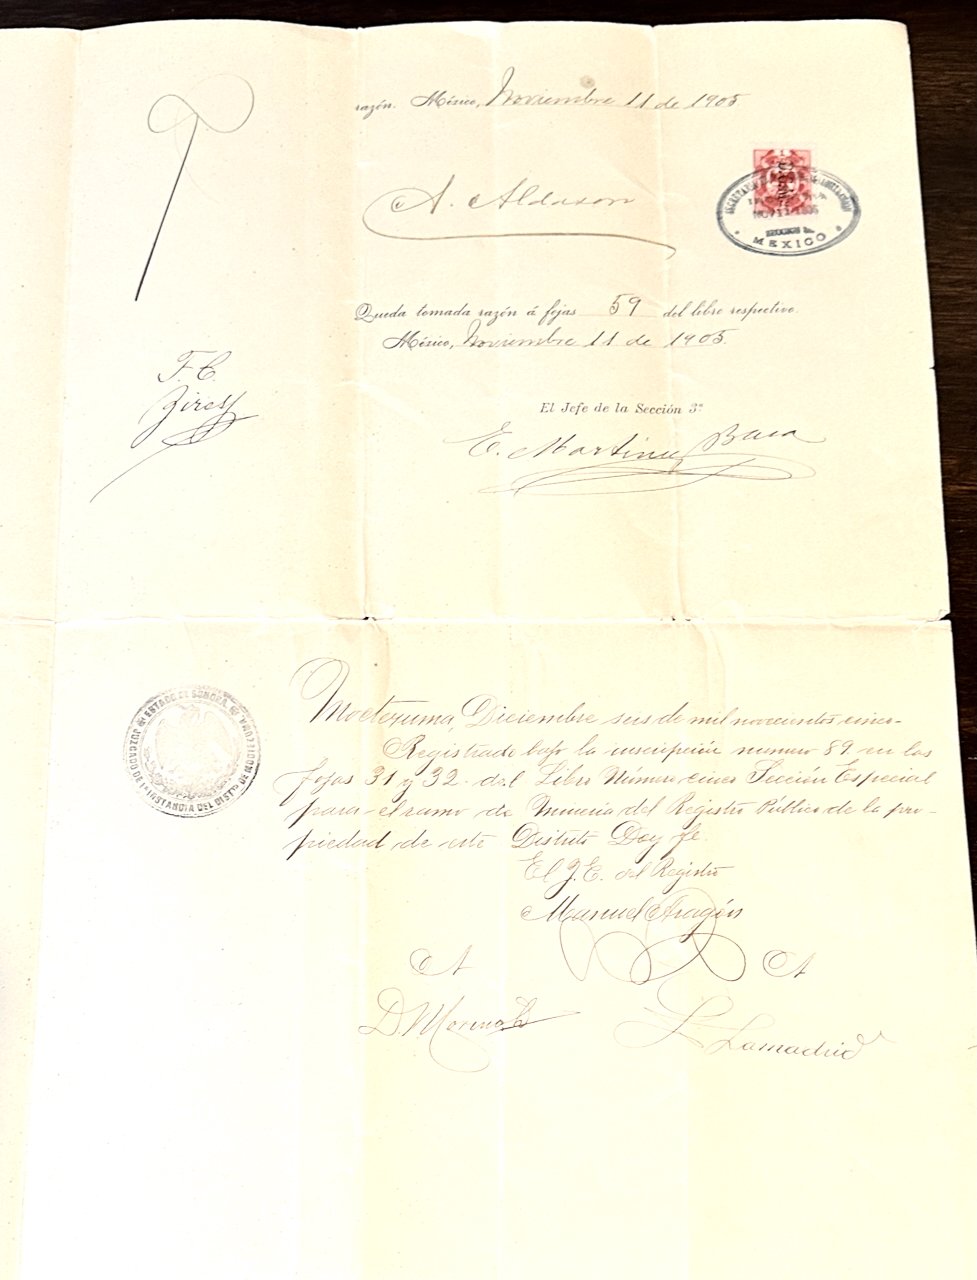 razón. México, Noviembre 11 de 1905
A. Aldasoro
SECRETARIA
NOV 11 1905
MEXICO
Queda tomada razón á fojas 59 del libro respectivo.
México, Noviembre 11 de 1905.
F. C.
Zires
El Jefe de la Sección 3ª
E. Martinez Baca
ESTADO DE SONORA.
JUZGADO DE 1ª INSTANCIA DEL DISTº DE MOCTEZUMA.
Moctezuma, Diciembre seis de mil novecientos cinco-
Registrado bajo la inscripción numero 89 en las
fojas 31 y 32 del Libro Número cinco Sección Especial
para el ramo de Mineria del Registro Público de la pro-
piedad de este Distrito Doy fe.
El J. E. del Registro
Manuel Aragón
A A
D Moreno
L. Lamadrid